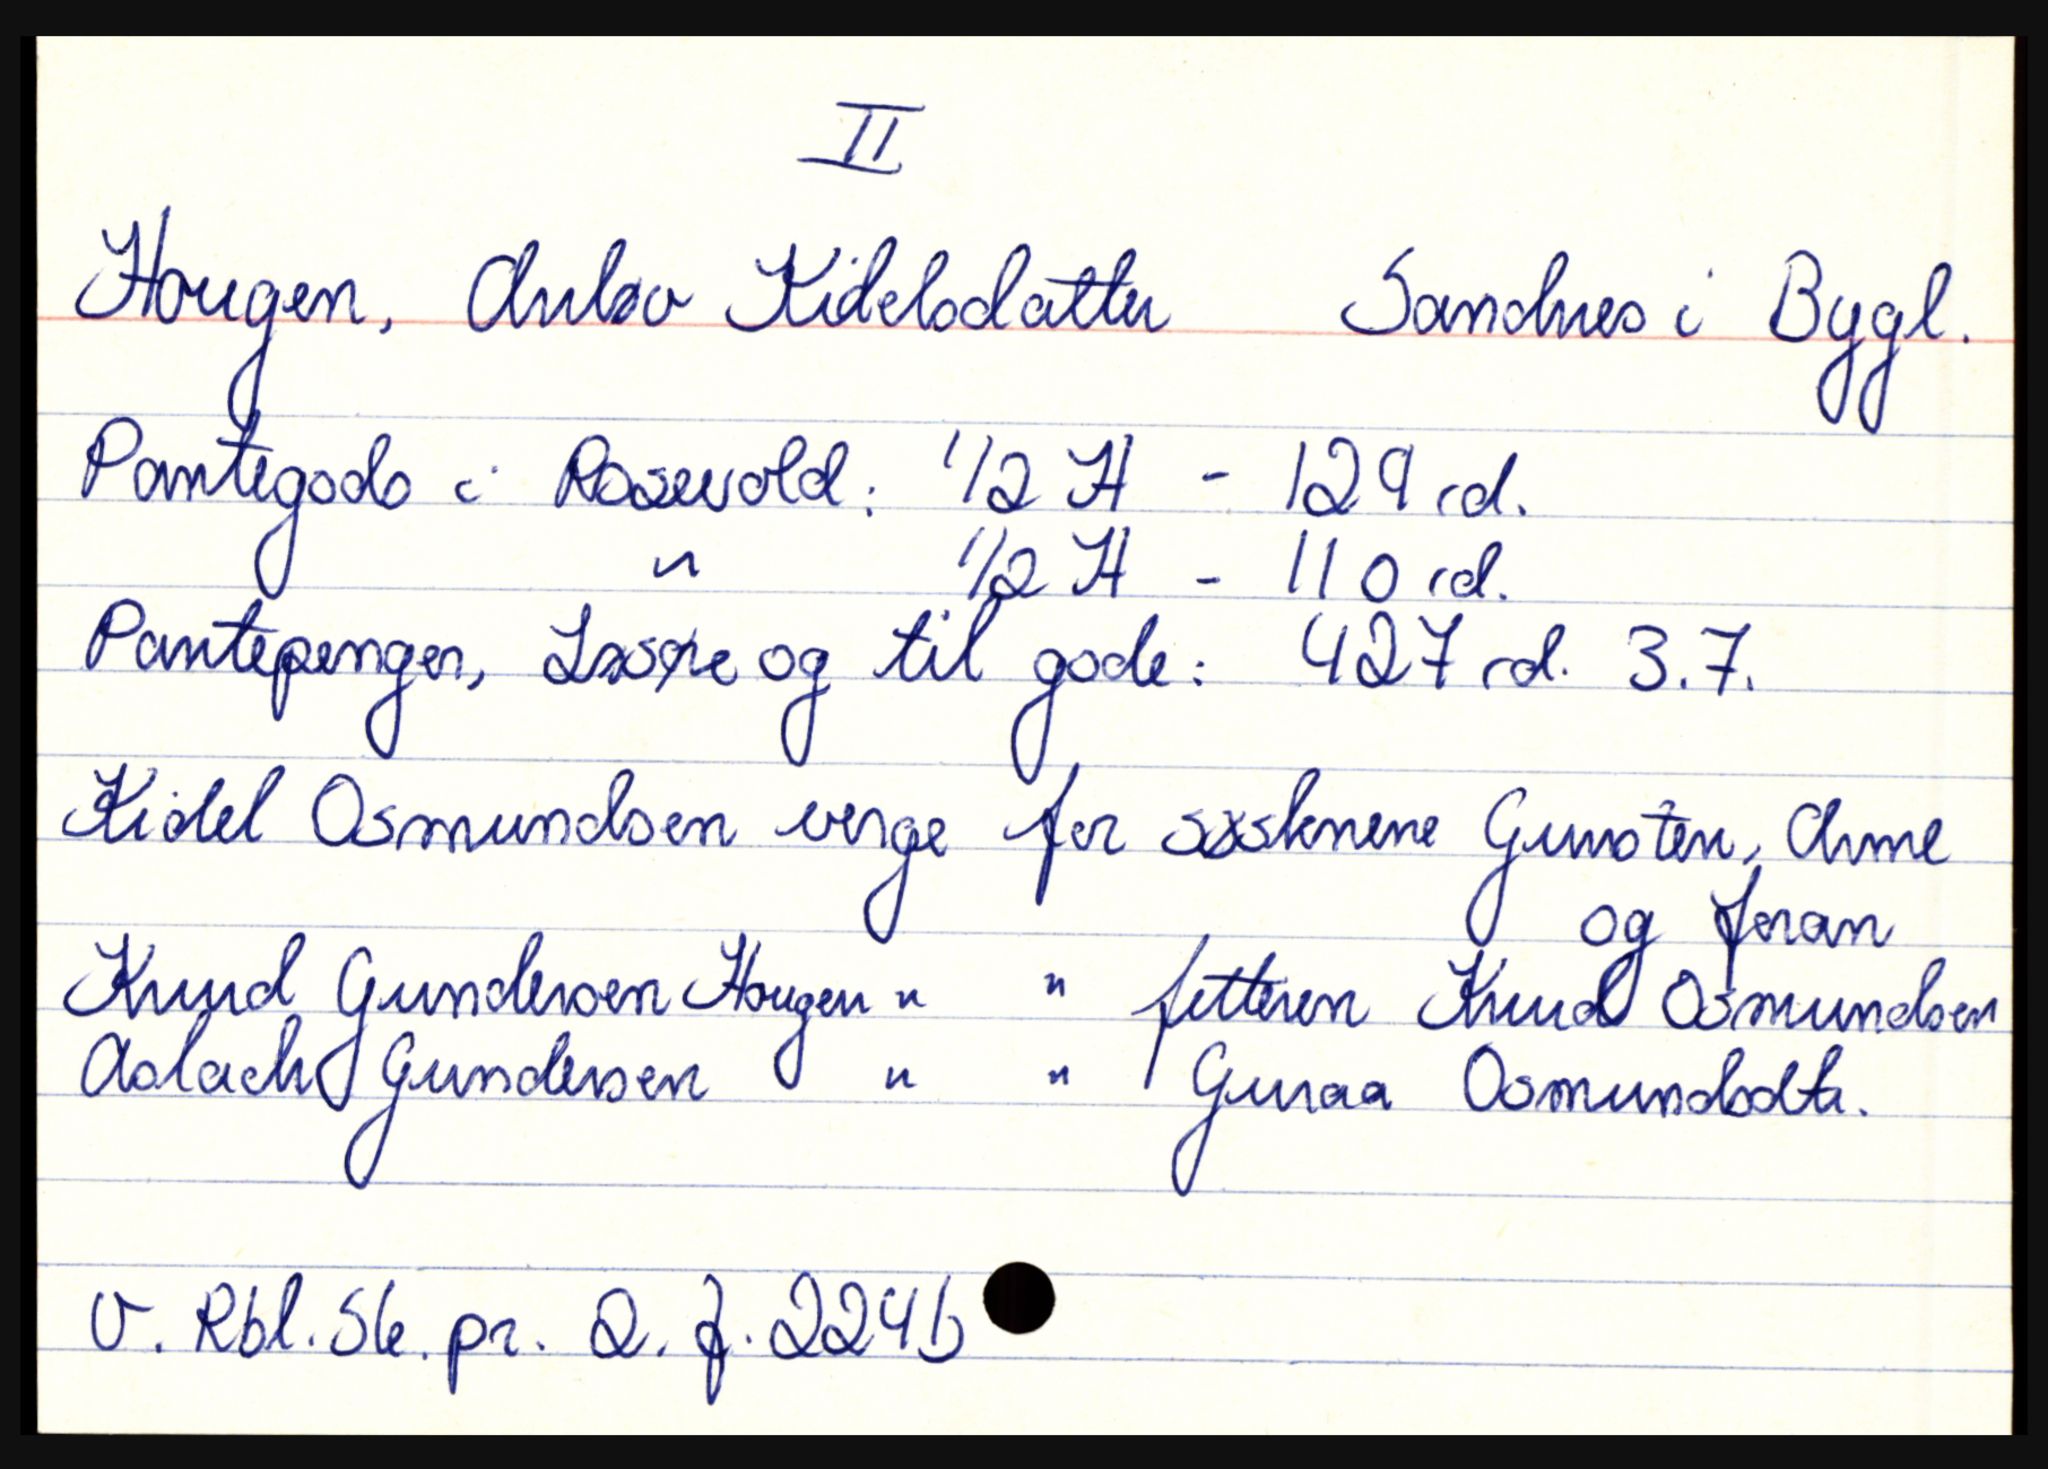 II
Hougen, Anløv Kidelsdatter Sandnes i Bygl.
Pantegods i Rosevold: 1/2 H - 129 rd.
" 1/2 H - 110 rd.
Pantepenger, Løsøre og til gode: 427 rd. 3.7.
Kidel Osmundsen verge for søsknene Gunsten, Anne
og Joran
Knud Gundersen Hougen " " fetteren Knud Osmundsen
Aslach Gundersen " " Guraa Osmundsdtr.
V. Rbl. Sk. pr. 2. f. 224b